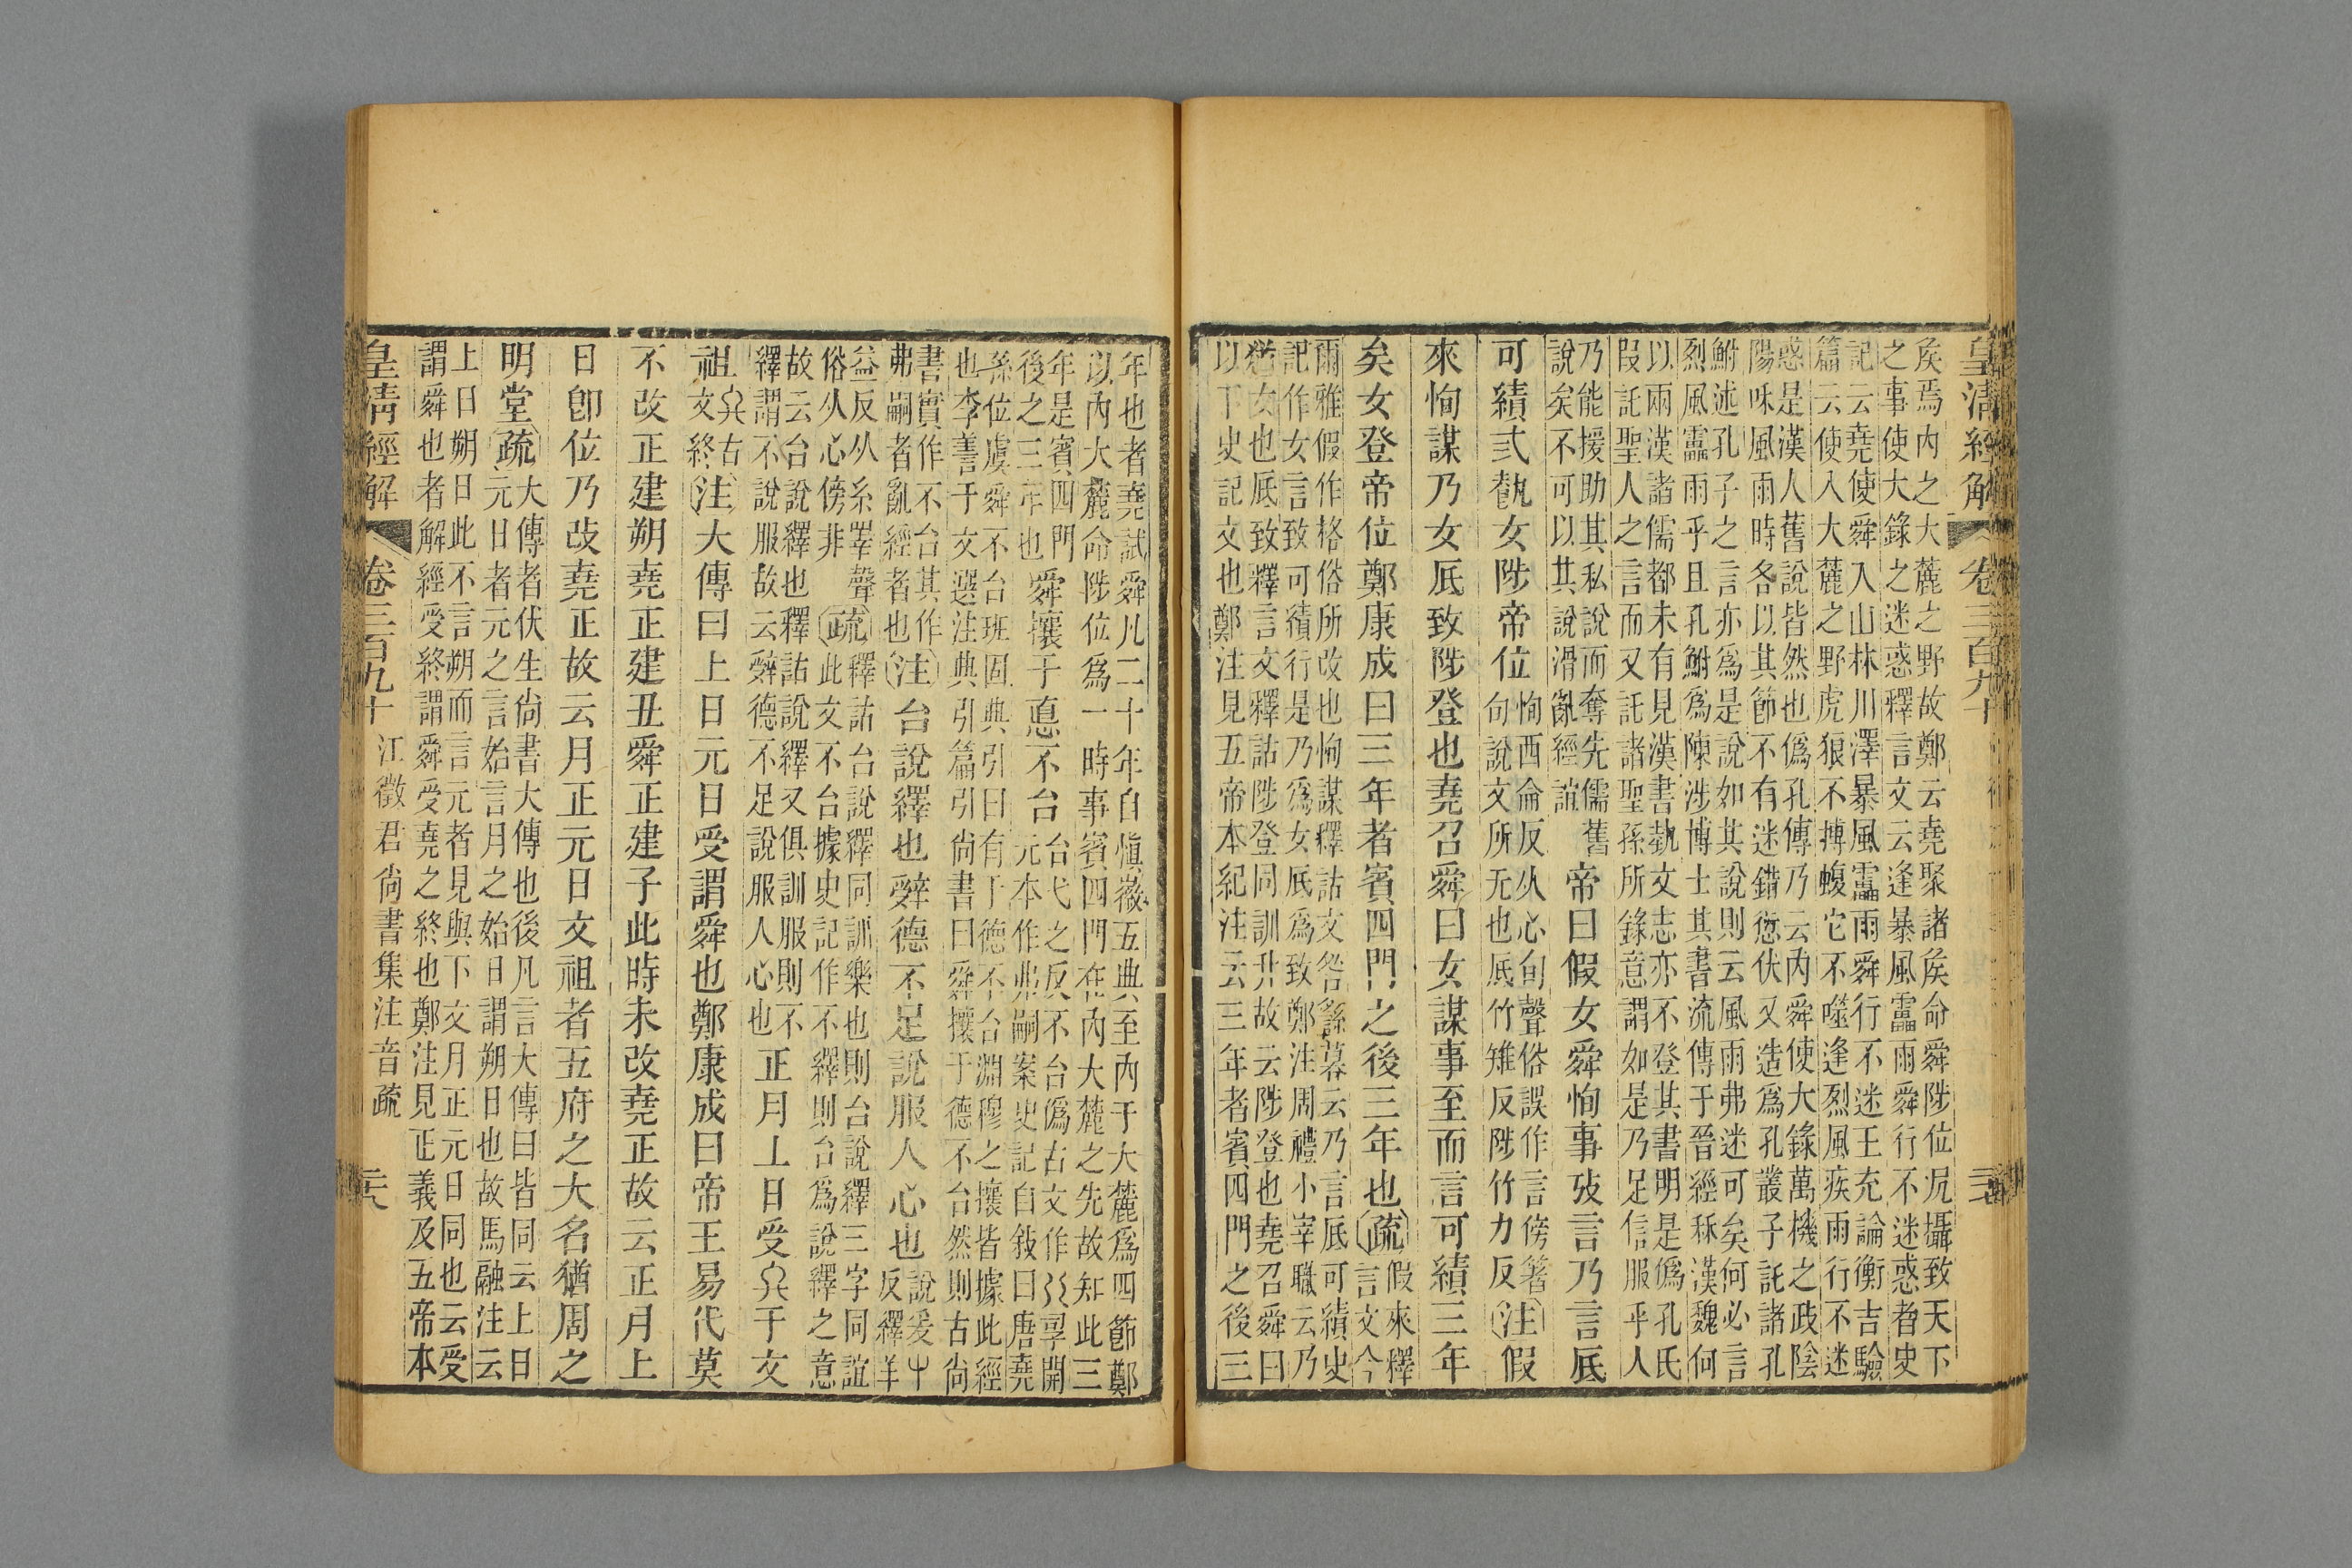 皇清經解
卷三百九十
矦焉內之大麓之野故鄭云堯聚諸矦命舜陟位凥攝致天下
之事使大錄之迷惑釋言文云逢暴風靁雨舜行不迷惑者史
記云堯使舜入山林川澤暴風靁雨舜行不迷王充論衡吉驗
篇云使入大麓之野虎狼不搏蝮它不噬逢烈風疾雨行不迷
惑是漢人舊說皆然也僞孔傳乃云內舜使大錄萬機之政陰
陽咊風雨時各以其節不有迷錯愆伏又造爲孔叢子託諸孔
鮒述孔子之言亦爲是說如其說則云風雨弗迷可矣何必言
烈風靁雨乎且孔鮒爲陳涉博士其書流傳于晉經秝漢魏何
以兩漢諸儒都未有見漢書埶文志亦不登其書明是僞孔氏
叚託聖人之言而又託諸聖孫所錄意謂如是乃足信服乎人
乃能援助其私說而奪先儒舊
說矣不可以其說滑亂經誼
帝曰假女舜恂事攷言乃言厎
可績弎埶女陟帝位
恂西侖反从心旬聲俗誤作言傍箸
句說文所无也厎竹雉反陟竹力反
注假
來恂謀乃女厎致陟登也堯召舜曰女謀事至而言可績三年
矣女登帝位鄭康成曰三年者賓四門之後三年也疏
假來釋
言文今
爾雅假作格俗所改也恂謀釋詁文咎繇謩云乃言厎可績史
記作女言致可績行是乃爲女厎爲致鄭注周禮小宰職云乃
猶女也厎致釋言文釋詁陟登同訓升故云陟登也堯召舜曰
以下史記文也鄭注見五帝本紀注云三年者賓四門之後三
年也者堯試舜凡二十年自愼徽五典至內于大麓爲四節鄭
以內大麓命陟位爲一時事賓四門在內大麓之先故知此三
年是賓四門
後之三年也
舜攘于悳不台
台弋之反不台僞古文作孠開
元本作弗嗣案史記自敍曰唐堯
孫位虞舜不台班固典引曰有于德不台淵穆之攘皆據此經
也李善于文選注典引篇引尙書曰舜攘于德不台然則古尙
書實作不台其作
弗嗣者亂經者也
注台說繹也舜德不足說服人心也
說爰屮
反繹羊
益反从糸睪聲
俗从心傍非
疏
釋詁台說繹同訓樂也則台說繹三字同誼
此文不台據史記作不繹則台爲說繹之意
故云台說繹也釋詁說繹又俱訓服則不
繹謂不說服故云舜德不足說服人心也
正月上日受于文
祖
古
文終
注大傳曰上日元日受謂舜也鄭康成曰帝王易代莫
不改正建朔堯正建丑舜正建子此時未改堯正故云正月上
日卽位乃改堯正故云月正元日文祖者五府之大名猶周之
明堂疏
大傳者伏生尙書大傳也後凡言大傳曰皆同云上日
元日者元之言始言月之始日謂朔日也故馬融注云
上日朔日此不言朔而言元者見與下文月正元日同也云受
謂舜也者解經受終謂舜受堯之終也鄭注見正義及五帝本
皇清經解
卷三百九十
江徵君尙書集注音疏